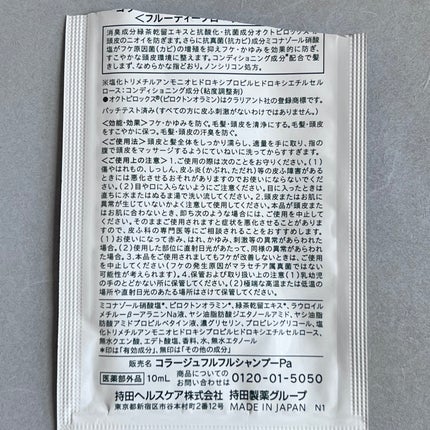 消臭成分緑茶乾留エキスと抗酸化・抗菌成分オクトピロックス®が
頭皮のニオイを防ぎます。さらに抗真菌(抗カビ)成分ミコナゾール硝酸
塩がフケ原因菌(カビ)の増殖を抑えフケ・かゆみを効果的に防ぎ、
すこやかな頭皮環境に整えます。コンディショニング成分※配合で髪
きしまず、なめらかな指どおり。ノンシリコン処方。
※塩化トリメチルアンモニオヒドロキシプロピルヒドロキシエチルセル
ロース:コンディショニング成分(粘度調整剤)
●オクトピロックス®(ピロクトンオラミン)はクラリアント社の登録商標です。
パッチテスト済み(すべての方に皮ふ刺激がないわけではありません。)
<効能・効果>フケ・かゆみを防ぐ。毛髪・頭皮を清浄にする。毛髪・頭皮
をすこやかに保つ。毛髪・頭皮の汗臭を防ぐ。
<ご使用法>頭皮と髪全体をしっかり濡らし、適量を手に取り、指の
腹で頭皮をマッサージするようにていねいに洗ってからすすぎます。
<ご使用上の注意>1.ご使用の際は次のことをお守りください。(1)
傷やはれもの、しっしん、皮ふ炎(かぶれ、ただれ)等の皮ふ障害がある
ときには悪化させるおそれがありますのでお使いにならないでくだ
さい。(2)目や口に入らないようにご注意ください。目に入ったときは
直ちに水またはぬるま湯で洗い流してください。2.頭皮またはお肌に
異常が生じていないかよく注意して使用してください。本品が頭皮また
はお肌に合わないとき、即ち次のような場合には、ご使用を中止して
ください。そのままご使用されますと症状を悪化させることがあります
ので、皮ふ科の専門医等にご相談されることをおすすめします。
(1)お使いになって赤み、はれ、かゆみ、刺激等の異常があらわれた
場合。(2)使用した部位に直射日光があたって、同様の異常があらわれ
た場合。3.本品をご使用されましてもフケが改善しないときは、ご使用
を中止してください(フケの発生原因がマラセチア属真菌ではない
可能性が考えられます)。4.保管および取り扱い上の注意(1)乳幼児
の手のとどかない所に保管してください。(2)極端な高温または低温の
場所や直射日光のあたる場所はさけて保管してください。
ミコナゾール硝酸塩*、ピロクトンオラミン*、緑茶乾留エキス*、ラウロイル
メチル-β-アラニンNa液、ヤシ油脂肪酸ジエタノールアミド、ヤシ油
脂肪酸アミドプロピルベタイン液、濃グリセリン、プロピレングリコール、塩
化トリメチルアンモニオヒドロキシプロピルヒドロキシエチルセルロース、
無水クエン酸、エデト酸塩、香料、水、無水エタノール
*印は「有効成分」、無印は「その他の成分」
販売名 コラージュフルフルシャンプーPa
医薬部外品 10mL 商品についての お問い合わせは 0120-01-5050
持田ヘルスケア株式会社 持田製薬グループ
東京都新宿区市谷本村町2番12号 MADE IN JAPAN N1